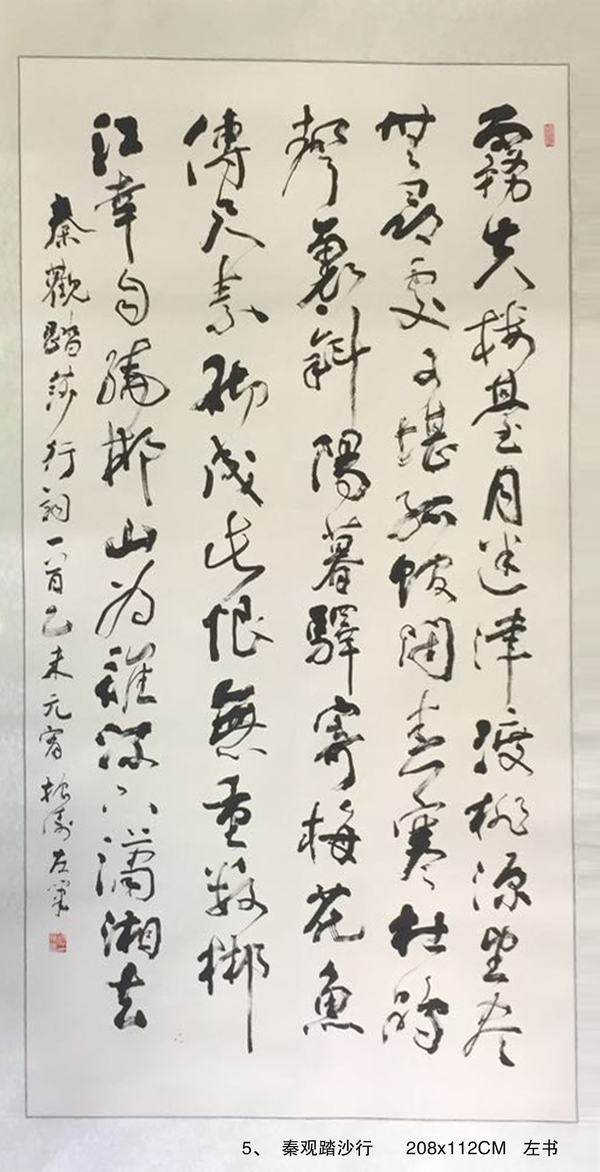 霧失楼臺月迷津渡桃源望尽
無尋處可堪孤館闭春寒杜鹃
聲裏斜陽暮驛寄梅花魚
傳尺素砌成此恨無重數郴
江幸自繞郴山为誰流下瀟湘去
秦觀踏莎行詞一首乙未元宵左笔
5、 秦观踏沙行 208x112CM 左书